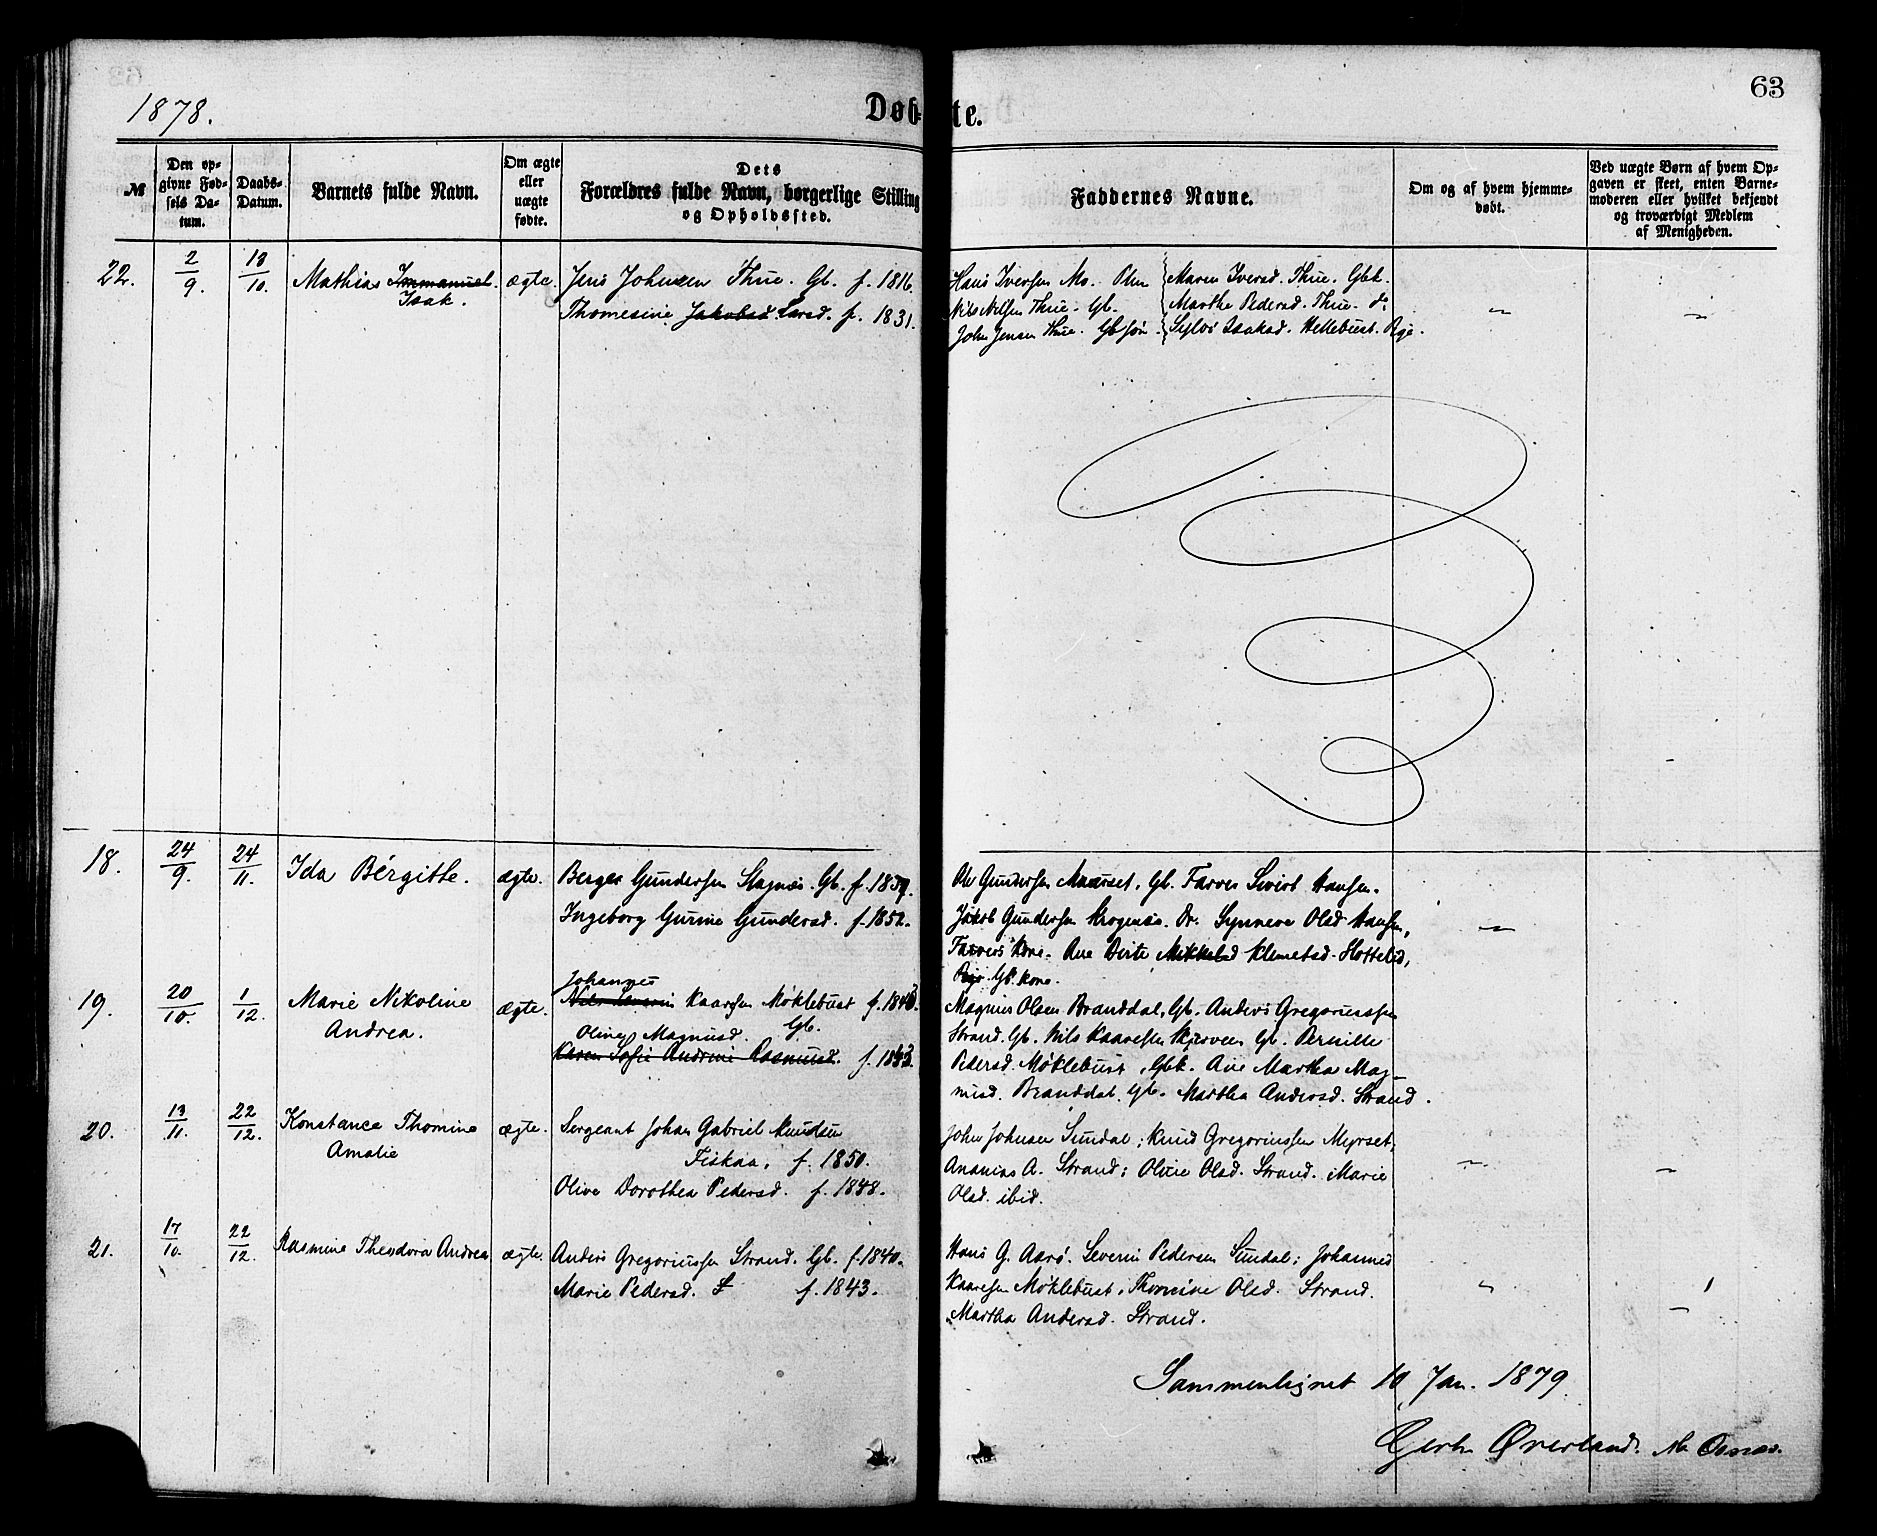 63
1878.
Døbte.
№
Den opgivne Fødsels Datum.
Daabs-Datum.
Barnets fulde Navn.
Om ægte eller uægte fødte.
Dets Forældres fulde Navn, borgerlige Stilling og Opholdssted.
Faddernes Navne.
Om og af hvem hjemmedøbt.
Ved uægte Børn af hvem Opgaven er skeet, enten Barnemoderen eller hvilket bekjendt og troværdigt Medlem af Menigheden.
22. 2/9. 13/10. Mathias Immanuel. ægte. Jens Johnsen Thue. Gb. f. 1816.
Isak.
Thomesine Jakobsd. Larsd. f. 1831.
Hans Iversen Mo. Maren Iversd. Thue. Gbk.
Nils Nilsen Thue. Gb. Marthe Pedersd. Thue. do
John Jensen Thue. Gbsøn. Isaksd. Hellebust.
18. 24/9. 24/11. Ida Bergitte. ægte. Berger Gundersen Stagnæs. Gb. f. 1851.
Ingeborg Gurine Gundersd. f. 1852.
Ole Gundersen Maurset, Gb. Farver Sivert Hansen.
Jakob Gundersen Dr. Synneve Olsd Hansen,
Farvers Kone. Ane Berte Mikkelsd Klemetsd.
Gb. kone.
19. 20/10. 1/12. Marie Nikoline ægte.
Andrea.
Johannes
Nils Severin Kaaresen Møklebust f. 1843.
Gb.
Oline Magnusd.
Karen Sofie Andrine Rasmusd. f. 1843.
Magnus Olsen Branddal, Gb. Anders Gregoriussen
Strand. Gb. Nils Kaaresen Skjerveen Gb. Pernille
Pedersd. Møklebust, Gbk. Ane Martha Mag-
nusd. Branddal. Gb. Martha Andersd. Strand.
20. 13/11. 22/12. Konstance Thomine ægte. Sergeant Johan Gabriel Knudsen
Amalie
Fiskaa, f. 1850.
Olive Dorothea Pedersd. f. 1848.
John Johnsen Sundal; Knud Gregoriussen Myrset,
Ananias A. Strand; Oline Olsd. Strand. Marie
Olsd. ibid.
21. 17/10. 22/12. Rasmine Theodora Andrea ægte. Anders Gregoriussen Strand. Gb. f. 1840.
Marie Pedersd. f. 1843.
Hans G. Aarø. Severin Pedersen Sundal; Johannes
Kaaresen Møklebust, Thomine Olsd. Strand.
Martha Andersd. Strand.
Sammenlignet 10 Jan. 1879.
Gerh. Øverland.